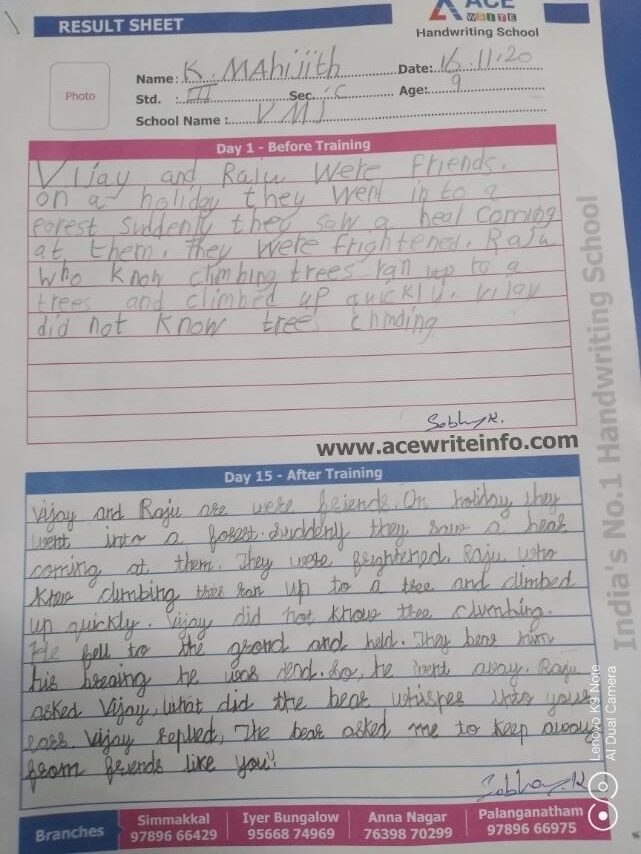 RESULT SHEET
ACE
WRITE
Handwriting School
Photo
Name: K. MAhijith Date: 16.11.20
Std. : III Sec. : C Age: 9
School Name : V M J
Day 1 - Before Training
Vijay and Raju were friends.
on a holiday they went in to a
forest suddenly they saw a beal coming
at them. they were frightened. Raju
who know climbing trees ran up to a
trees and climbed up quickly. vijay
did not know tree climding
www.acewriteinfo.com
Day 15 - After Training
Vijay and Raju are were friends. On holiday they
went into a forest. suddenly they saw a bear
coming at them. They were frightened. Raju who
knew climbing tree ran up to a tree and climbed
up quickly. Vijay did not know tree climbing.
He fell to the grond and held. They bear him
his breaing he was dead. So, he went away. Raju
asked Vijay, What did the bear whisper into your
ears. Vijay replied, The bear asked me to keep away
from friends like you!!
India's No.1 Handwriting School
Lenovo K9 Note
AI Dual Camera
Branches
Simmakkal
97896 66429
Iyer Bungalow
95668 74969
Anna Nagar
76398 70299
Palanganatham
97896 66975